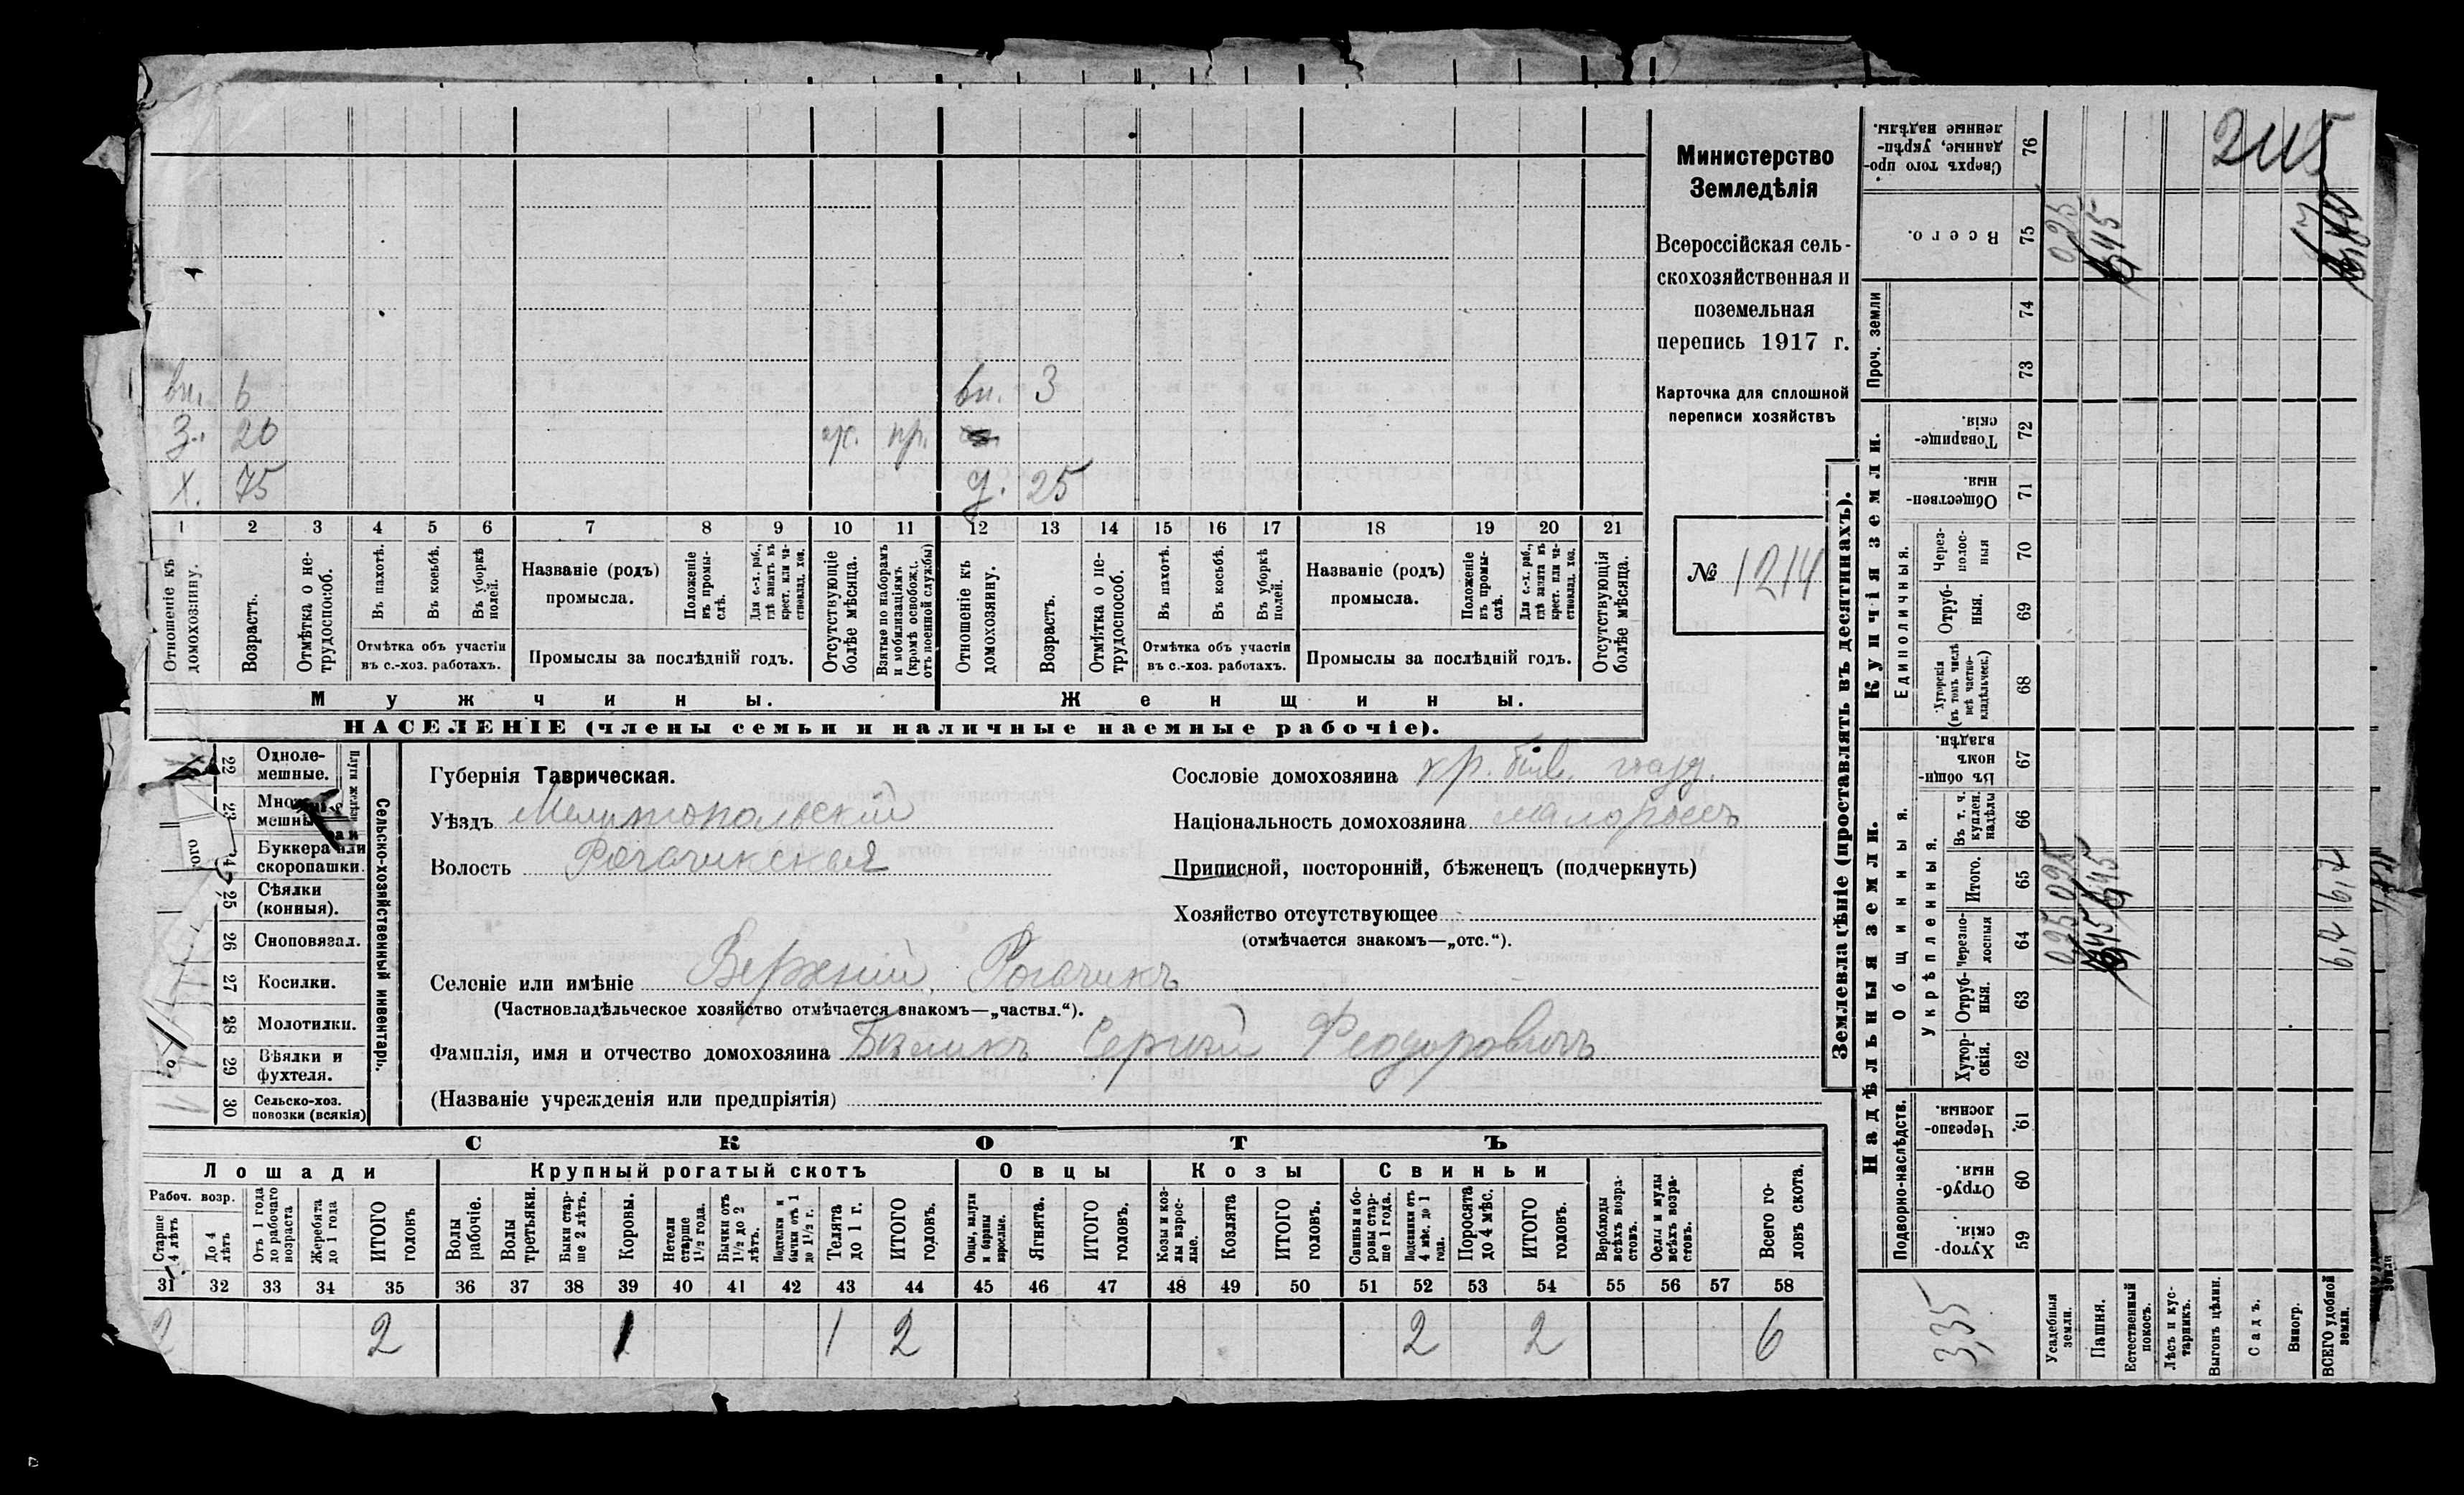 вн. 6 вн. 3
З. 26 пр.
х. 75 д. 25
1 2 3 4 5 6 7 8 9 10 11 12 13 14 15 16 17 18 19 20 21
Отношеніе къ домохозяину.
Возрастъ.
Отмѣтка о не-
трудоспособ.
Въ пахотѣ.
Въ косьбѣ.
Въ уборкѣ полей.
Отмѣтка объ участіи
въ с.-хоз. работахъ.
Названіе (родъ)
промысла.
Положеніе въ промы-
слѣ.
Для с.-х. раб., гдѣ занятъ въ крест. или ча-
ствовлад. хоз.
Промыслы за послѣдній годъ.
Отсутствующіе болѣе мѣсяца.
Взятые по наборамъ и мобилизаціямъ (кромѣ освобожд. отъ военной службы)
Отношеніе къ домохозяину.
Возрастъ.
Отмѣтка о не-
трудоспособ.
Въ пахотѣ.
Въ косьбѣ.
Въ уборкѣ полей.
Отмѣтка объ участіи
въ с.-хоз. работахъ.
Названіе (родъ)
промысла.
Положеніе въ промы-
слѣ.
Для с.-х. раб., гдѣ занята въ крест. или ча-
ствовлад. хоз.
Промыслы за послѣдній годъ.
Отсутствующія болѣе мѣсяца.
Мужчины.
Женщины.
НАСЕЛЕНІЕ (члены семьи и наличные наемные рабочіе).
Министерство
Земледѣлія
Всероссійская сель-
скохозяйственная и
поземельная
перепись 1917 г.
Карточка для сплошной
переписи хозяйствъ
№ 1214
22 Одноле-
мешные.
23
24 Буккера или
скоропашки.
25 Сѣялки
(конныя).
26 Сноповязал.
27 Косилки.
28 Молотилки.
29 Вѣялки и
фухтеля.
30 Сельско-хоз.
повозки (всякія)
Сельско-хозяйственный инвентарь.
Губернія Таврическая.
Уѣздъ Мелитопольскій
Волость Рогачикская
Сословіе домохозяина кр.
Національность домохозяина малороссъ
Приписной, посторонній, бѣженецъ (подчеркнуть)
Хозяйство отсутствующее
(отмѣчается знакомъ—„отс.“).
Селеніе или имѣніе Верхній Рогачикъ
(Частновладѣльческое хозяйство отмѣчается знакомъ—„частвл.“).
Фамилія, имя и отчество домохозяина Сергѣй Феодоровичъ
(Названіе учрежденія или предпріятія)
СКОТЪ
Лошади
Крупный рогатый скотъ
Овцы
Козы
Свиньи
Рабоч. возр.
Старше 4 лѣтъ
До 4 лѣтъ
Отъ 1 года до рабочаго возраста
Жеребята до 1 года
ИТОГО головъ
Волы рабочіе.
Волы третьяки.
Быки стар-
ше 2 лѣтъ.
Коровы.
Нетели старше 1½ года.
Бычки отъ 1½ до 2 лѣтъ.
Подтелки и бычки отъ 1 до 1½ г.
Телята до 1 г.
ИТОГО головъ.
Овцы, валухи и бараны взрослые.
Ягнята.
ИТОГО головъ.
Козы и коз-
лы взрос-
лые.
Козлята
ИТОГО головъ.
Свиньи и бо-
ровы стар-
ше 1 года.
Подсвинки отъ 4 мѣс. до 1 года.
Поросята до 4 мѣс.
ИТОГО головъ.
Верблюды всѣхъ возра-
стовъ.
Ослы и мулы всѣхъ возра-
стовъ.
Всего го-
ловъ скота.
31 32 33 34 35 36 37 38 39 40 41 42 43 44 45 46 47 48 49 50 51 52 53 54 55 56 57 58
2 2 1 1 2 2 2 6
Землевладѣніе (проставлять въ десятинахъ).
Купчія земли.
Надѣльныя земли.
Сверхъ того про-
данные, укрѣп-
ленные надѣлы. 76
Всего. 75
Проч. земли
74
73
Товарище-
скія. 72
Обществен-
ныя. 71
Единоличныя.
Через-
полос-
ныя 70
Отруб-
ныя. 69
Хуторскія (въ томъ числѣ всѣ частно-
владѣльческ.) 68
Общинныя.
Въ общин-
номъ владѣн. 67
Укрѣпленныя.
Въ т. ч. куплен. надѣлы 66
Итого. 65
Черезпо-
лосныя 64
Отруб-
ныя. 63
Хутор-
скія. 62
Подворно-наслѣдств.
Черезпо-
лосныя. 61
Отруб-
ныя. 60
Хутор-
скія. 59
Усадебныя земли.
Пашня.
Естественный покосъ.
Лѣсъ и кус-
тарникъ.
Выгонъ цѣлин.
Садъ.
Виногр.
ВСЕГО удобной земли.
3,35
0,25
0,25 0,25
6,45
6,7 6,7